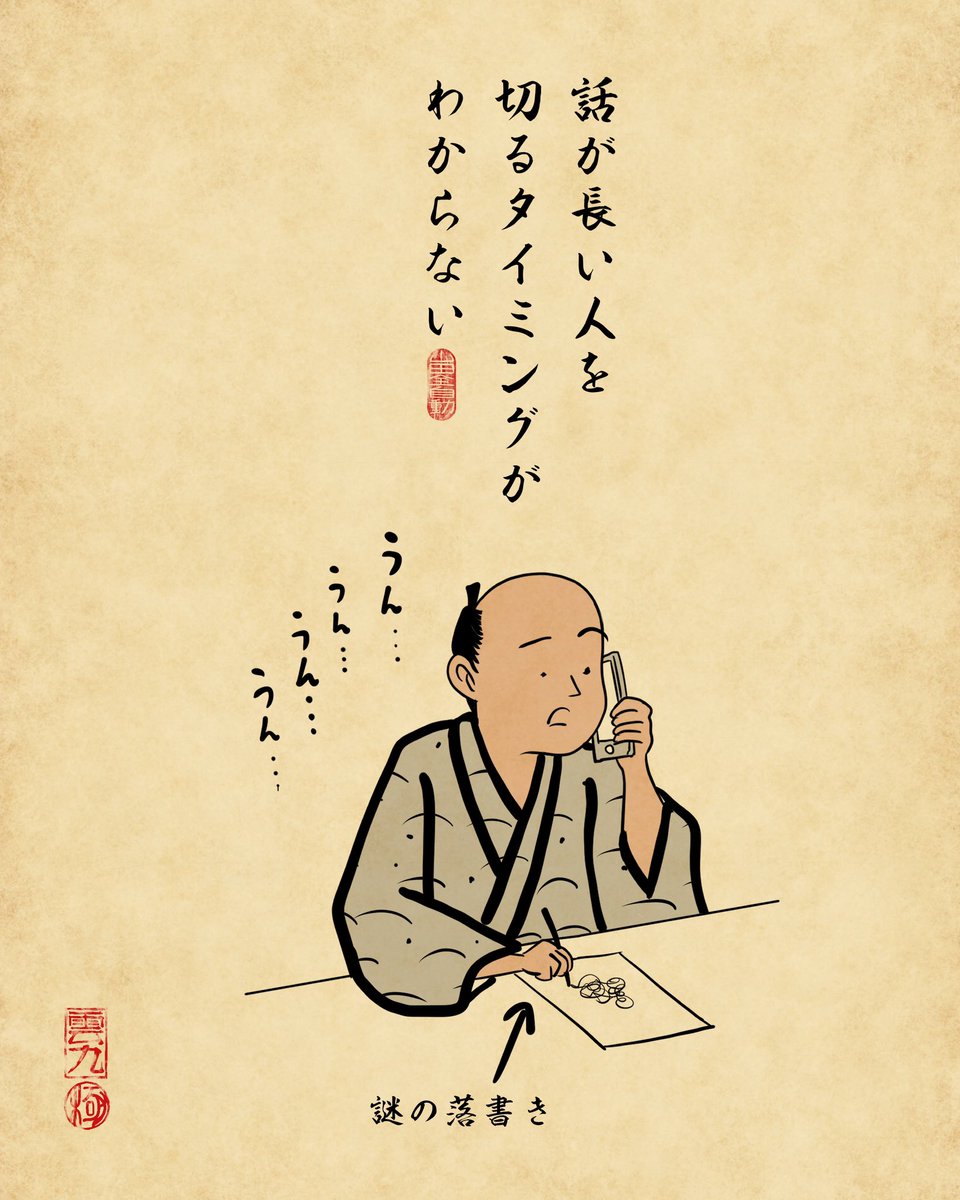 話が長い人を
切るタイミングが
わからない
うん…
うん…
うん…
うん…
謎の落書き